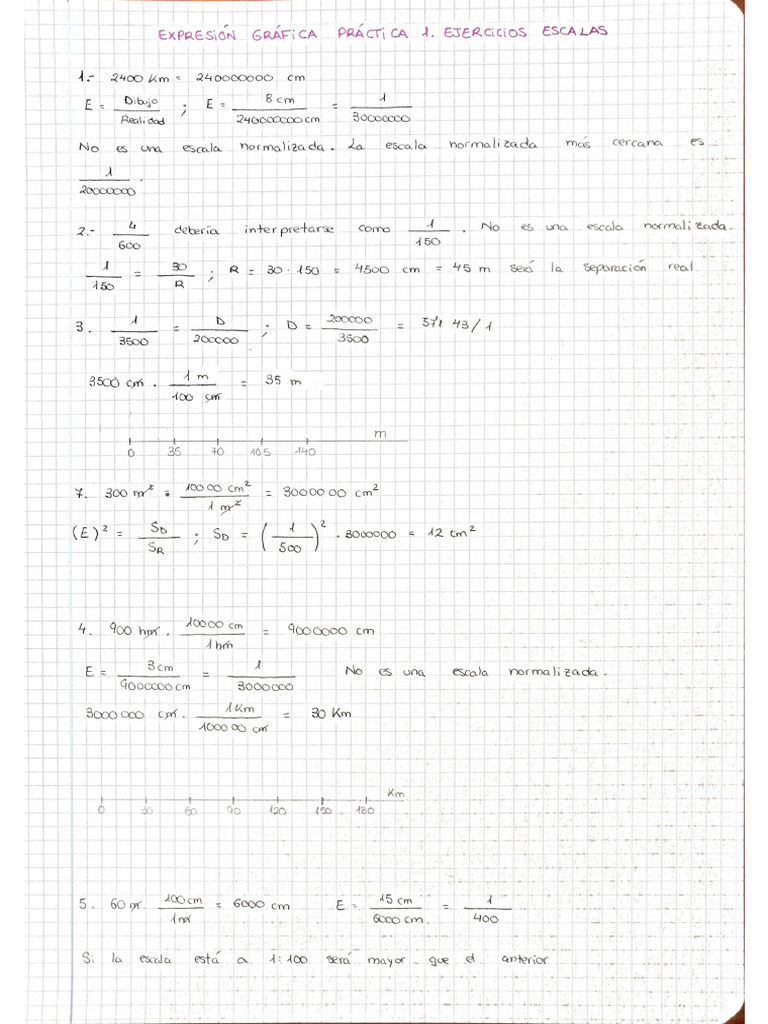 EXPRESIÓN GRÁFICA PRÁCTICA 1. EJERCICIOS ESCALAS
1.- 2400 Km = 240000000 cm
E = Dibujo / Realidad ; E = 8 cm / 240000000 cm = 1 / 30000000
No es una escala normalizada. La escala normalizada más cercana es
1 / 20000000 .
2.- 4 / 600 debería interpretarse como 1 / 150 . No es una escala normalizada.
1 / 150 = 30 / R ; R = 30 · 150 = 4500 cm = 45 m será la separación real
3. 1 / 3500 = D / 200000 ; D = 200000 / 3500 = 571 43 / 1
3500 cm · 1 m / 100 cm = 35 m
m
0 35 70 105 140
7. 300 m² · 10000 cm² / 1 m² = 3000000 cm²
(E)² = S_D / S_R ; S_D = (1 / 500)² · 3000000 = 12 cm²
4. 900 hm · 10000 cm / 1 hm = 9000000 cm
E = 3 cm / 9000000 cm = 1 / 3000000 No es una escala normalizada.
3000000 cm · 1 Km / 100000 cm = 30 Km
Km
0 30 60 90 120 150 180
5. 60 m · 100 cm / 1 m = 6000 cm E = 15 cm / 6000 cm = 1 / 400
Si la escala está a 1:100 será mayor que el anterior